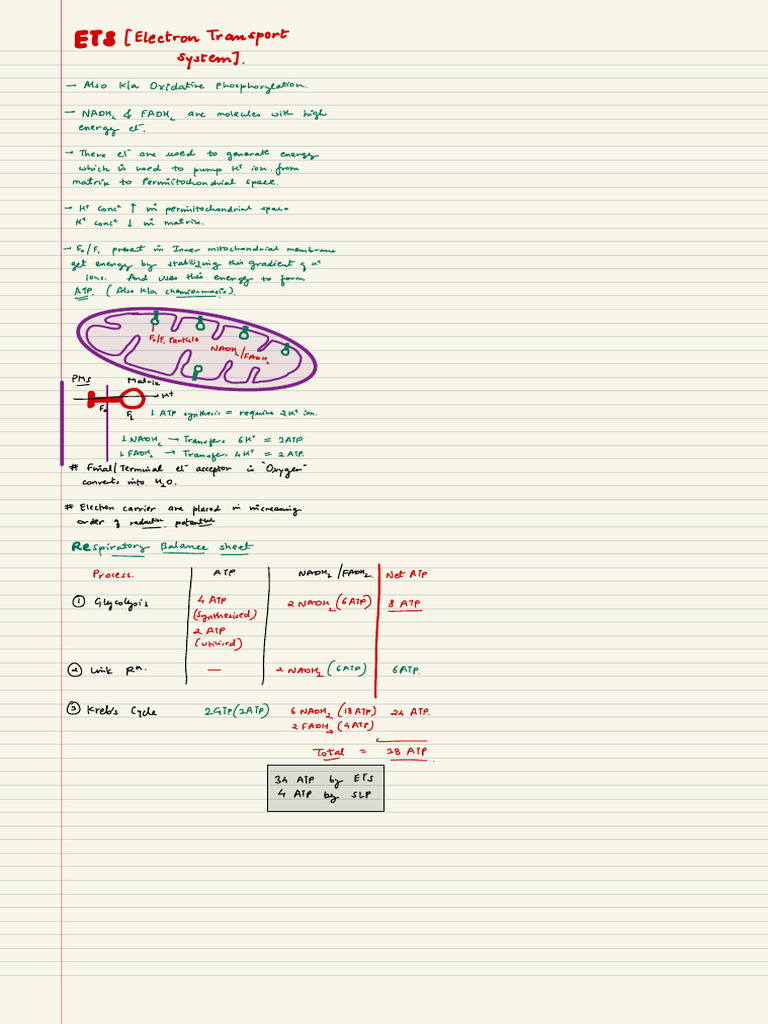 ETS [Electron Transport
System].
→ Also k/a Oxidative Phosphorylation.
→ NADH₂ & FADH₂ are molecules with high
energy el⁻.
→ These el⁻ are used to generate energy
which is used to pump H⁺ ion from
matrix to Permitochondrial space.
→ H⁺ concⁿ ↑ in permitochondrial space
H⁺ concⁿ ↓ in matrix.
→ F₀/F₁ present in Inner mitochondrial membrane
get energy by stabilizing this gradient of H⁺
ions. And uses this energy to form
ATP. (Also k/a chemiosmosis).
F₀/F₁ Particle
NADH₂/FADH₂
PMS Matrix
→ H⁺
F₀ F₁
1 ATP synthesis = require 2H⁺ ion.
1 NADH₂ → Transfers 6H⁺ = 3ATP
1 FADH₂ → Transfers 4H⁺ = 2 ATP.
# Final/Terminal el⁻ acceptor is "Oxygen"
converts into H₂O.
# Electron carrier are placed in increasing
order of reduction potential
Respiratory Balance sheet
Process. ATP NADH₂/FADH₂ Net ATP
① Glycolysis 4 ATP 2 NADH₂ (6ATP) 8 ATP
(Synthesised)
2 ATP
(utilised)
② Link Rⁿ. — 2 NADH₂ (6ATP) 6ATP.
③ Kreb's Cycle 2GTP(2ATP) 6 NADH₂ (18 ATP) 24 ATP.
2 FADH₂ (4ATP)
Total = 38 ATP
34 ATP by ETS
4 ATP by SLP